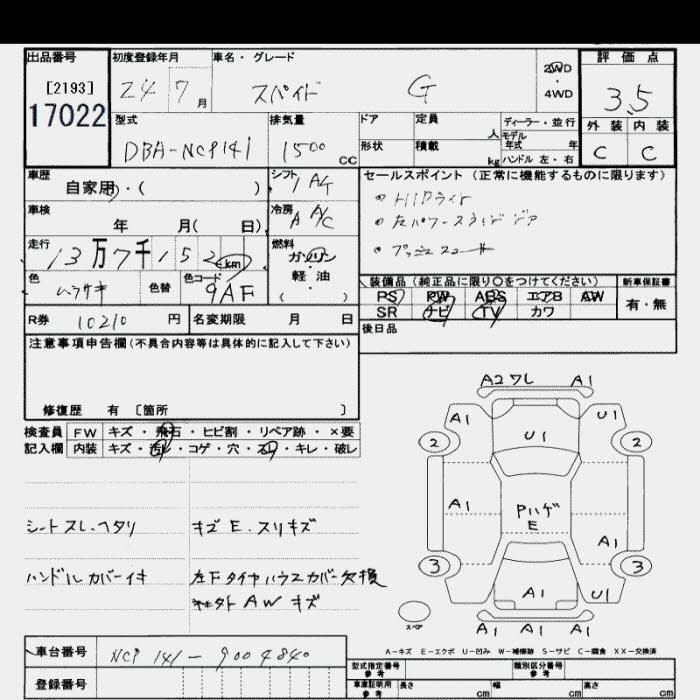 出品番号 初度登録年月 車名・グレード 評価点
[2193] 24 7月 スペイド G 2WD 3.5
17022 4WD
型式 排気量 ドア 定員 ディーラー・並行 外装 内装
DBA-NCP141 1500cc 人 モデル年式 年 C C
形状 積載 kg ハンドル 左・右
車歴 シフト セールスポイント (正常に機能するものに限ります)
自家用・( ) A/T ・HIDライト
車検 冷房 ・左パワースライドドア
年 月( 日) A A/C ・プッシュスタート
走行 燃料
13万7千152km ガソリン
軽・油
( )
色 色替 色コード 装備品 (純正品に限り○をつけてください) 新車保証書
ムラサキ 9AF PS PW ABS エアB AW 有・無
SR ナビ TV カワ
R券 10210円 名変期限 月 日 後日品
注意事項申告欄(不具合内容等は具体的に記入して下さい)
修復歴 有 〔箇所 〕
検査員 FW キズ・飛石・ヒビ割・リペア跡・×要
記入欄 内装 キズ・汚レ・コゲ・穴・キレ・破レ
A2ワレ A1
A1 U1
2 U1 2
A1 Pハゲ
E
A1
3 3
A1 U1
スペア A1 A1 A1
シートスレ・ヘタリ キズE.スリキズ
ハンドルカバーイキ 左Fタイヤハウスカバー欠損
AWキズ
A-キズ E-エクボ U-凹み W-補修跡 S-サビ C-腐食 XX-交換済
車台番号 NCP141-9004840
登録番号
型式指定番号 参考 類別区分番号 参考
車庫証明用 参考 長さ cm 幅 cm 高さ cm